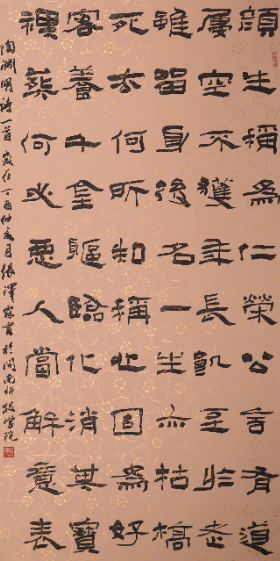 顏生稱爲仁榮公言有道
屢空不獲年長飢至於老
雖留身後名一生亦枯槁
死去何所知稱心固爲好
客養千金軀臨化消其寶
裸葬何必惡人當解意表
陶淵明詩一首歲在丁酉仲夏月張澤書於閩南科技學院